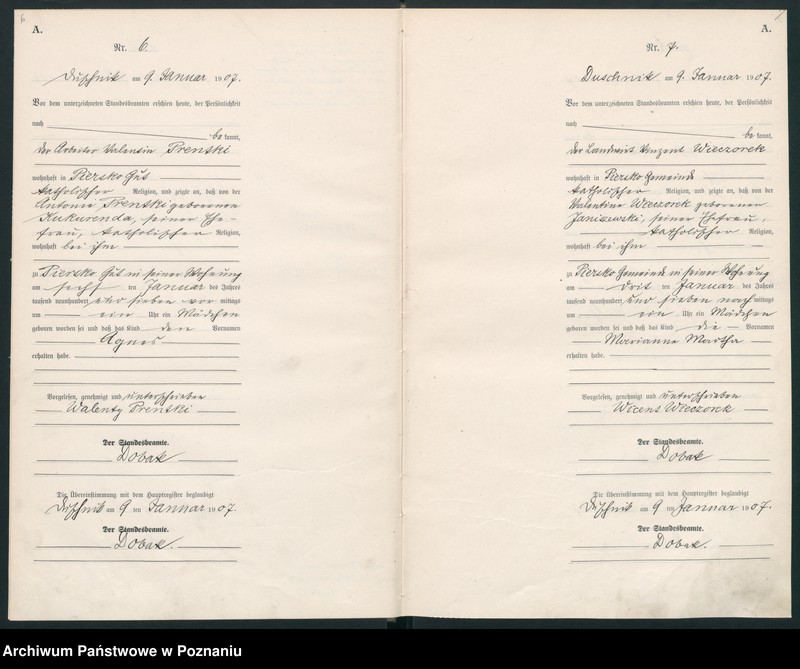 6
A.
Nr. 6.
Duschnik am 9. Januar 1907.
Vor dem unterzeichneten Standesbeamten erschien heute, der Persönlichkeit
nach
bekannt,
der Arbeiter Valentin Prenski
wohnhaft in Piersko Gut
katholischer Religion, und zeigte an, daß von der
Antonie Prenski geborenen
Kukurenda, seiner Ehe-
frau, katholischer Religion,
wohnhaft bei ihm
zu Piersko Gut in seiner Wohnung
am sechsten Januar des Jahres
tausend neunhundert und sieben vormittags
um ein Uhr ein Mädchen
geboren worden sei und daß das Kind den Vornamen
Agnes
erhalten habe.
Vorgelesen, genehmigt und unterschrieben
Walenty Prenski
Der Standesbeamte.
Dobak
Die Übereinstimmung mit dem Hauptregister beglaubigt
Duschnik am 9 ten Januar 1907.
Der Standesbeamte.
Dobak.
A.
Nr. 7.
Duschnik am 9. Januar 1907.
Vor dem unterzeichneten Standesbeamten erschien heute, der Persönlichkeit
nach
bekannt,
der Landwirt Vinzent Wieczorek
wohnhaft in Piersko Gemeinde
katholischer Religion, und zeigte an, daß von der
Valentine Wieczorek geborenen
Janiszewski, seiner Ehefrau,
katholischer Religion,
wohnhaft bei ihm
zu Piersko Gemeinde in seiner Wohnung
am dritten Januar des Jahres
tausend neunhundert und sieben nachmittags
um ein Uhr ein Mädchen
geboren worden sei und daß das Kind die Vornamen
Marianna Martha
erhalten habe.
Vorgelesen, genehmigt und unterschrieben
Wicent Wieczorek
Der Standesbeamte.
Dobak
Die Übereinstimmung mit dem Hauptregister beglaubigt
Duschnik am 9 ten Januar 1907.
Der Standesbeamte.
Dobak.
Archiwum Państwowe w Poznaniu